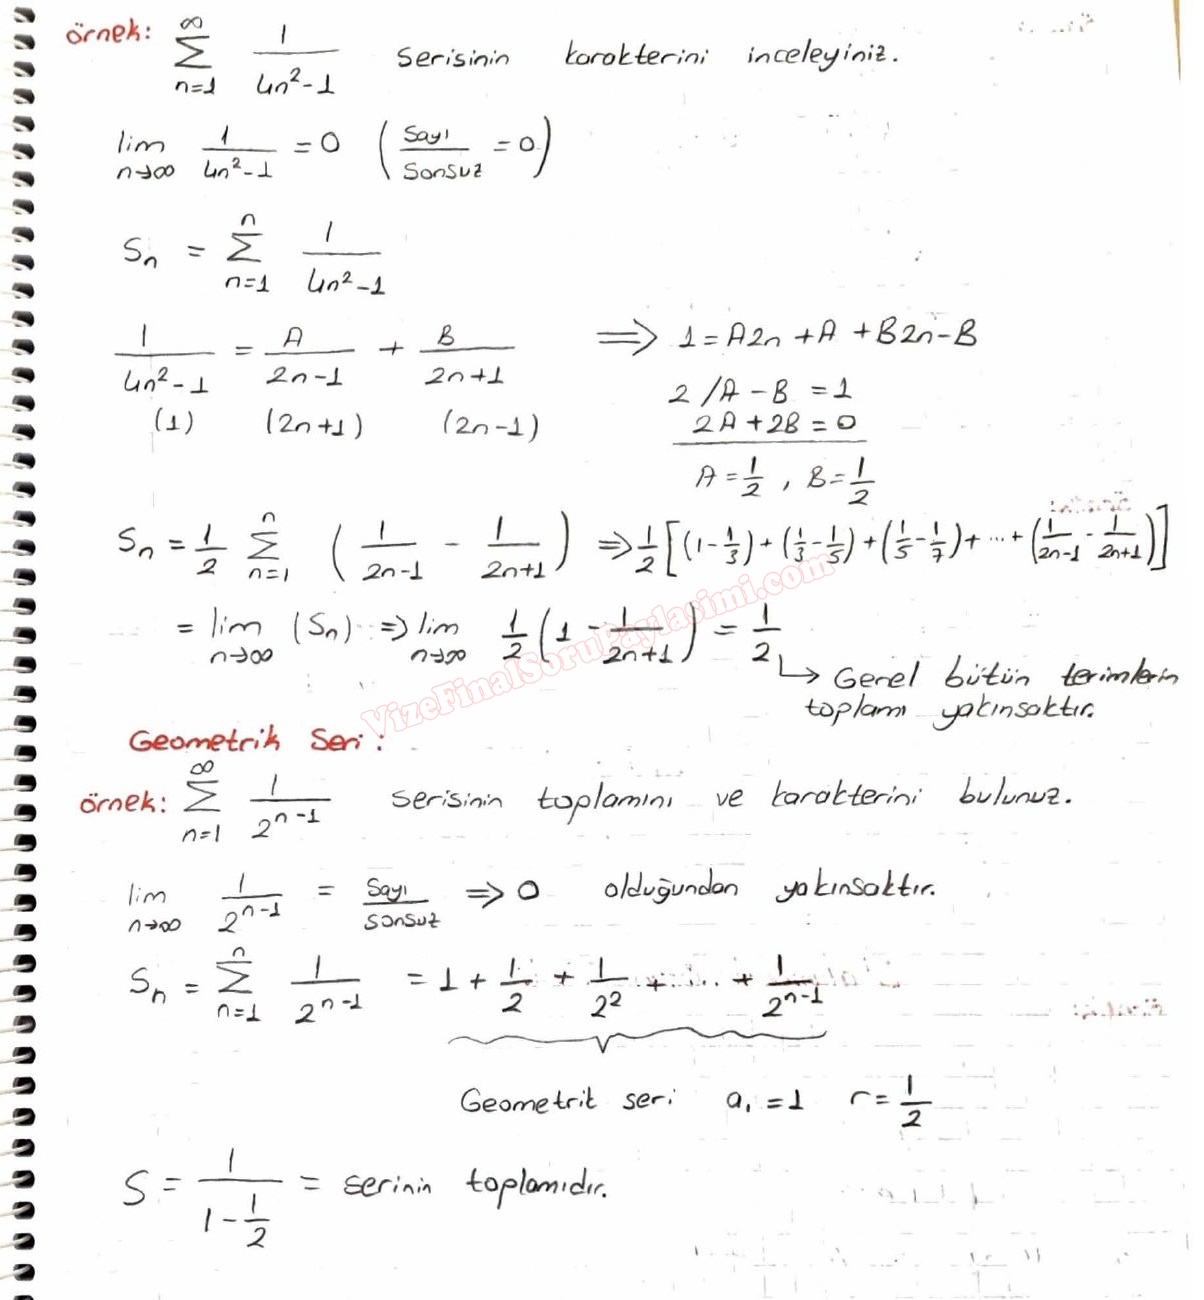 örnek: ∞ Σ n=1 1/(4n²-1) serisinin karakterini inceleyiniz.
lim n→∞ 1/(4n²-1) = 0 (Sayı/Sonsuz = 0)
Sn = n Σ n=1 1/(4n²-1)
1/(4n²-1) = A/(2n-1) + B/(2n+1) ⇒ 1 = A2n + A + B2n - B
(1) (2n+1) (2n-1)
2 / A - B = 1
2A + 2B = 0
A = 1/2 , B = 1/2
Sn = 1/2 n Σ n=1 (1/(2n-1) - 1/(2n+1)) ⇒ 1/2 [(1 - 1/3) + (1/3 - 1/5) + (1/5 - 1/7) + ... + (1/(2n-1) - 1/(2n+1))]
= lim n→∞ (Sn) ⇒ lim n→∞ 1/2 (1 - 1/(2n+1)) = 1/2
↳ Genel bütün terimlerin
toplamı yakınsaktır.
VizeFinalSoruPaylasimi.com
Geometrik Seri :
örnek: ∞ Σ n=1 1/2ⁿ⁻¹ serisinin toplamını ve karakterini bulunuz.
lim n→∞ 1/2ⁿ⁻¹ = Sayı/sonsuz ⇒ 0 olduğundan yakınsaktır.
Sn = n Σ n=1 1/2ⁿ⁻¹ = 1 + 1/2 + 1/2² + ... + 1/2ⁿ⁻¹
Geometrik seri a₁ = 1 r = 1/2
S = 1/(1 - 1/2) = serinin toplamıdır.